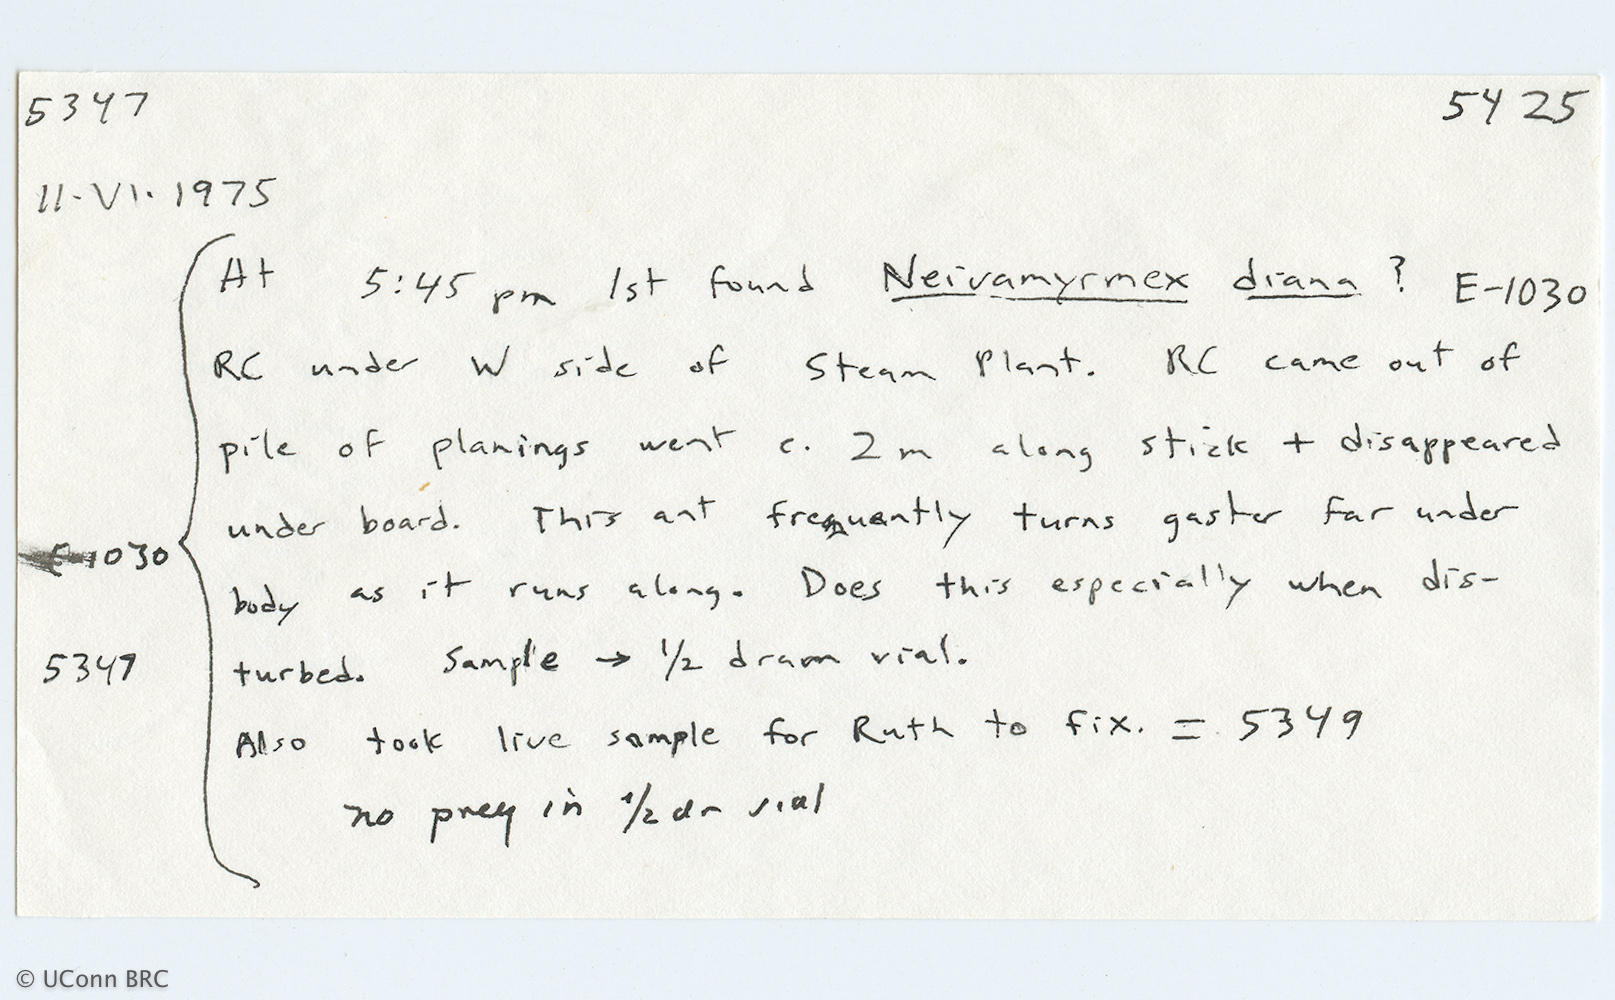 5347 5425
11-VI-1975
At 5:45 pm 1st found Neivamyrmex diana? E-1030
RC under W side of Steam Plant. RC came out of
pile of planings went c. 2m along stick + disappeared
under board. This ant frequently turns gaster far under
E-1030
body as it runs along. Does this especially when dis-
5347 turbed. Sample → 1/2 dram vial.
Also took live sample for Ruth to fix. = 5349
no prey in 1/2 dr vial
© UConn BRC